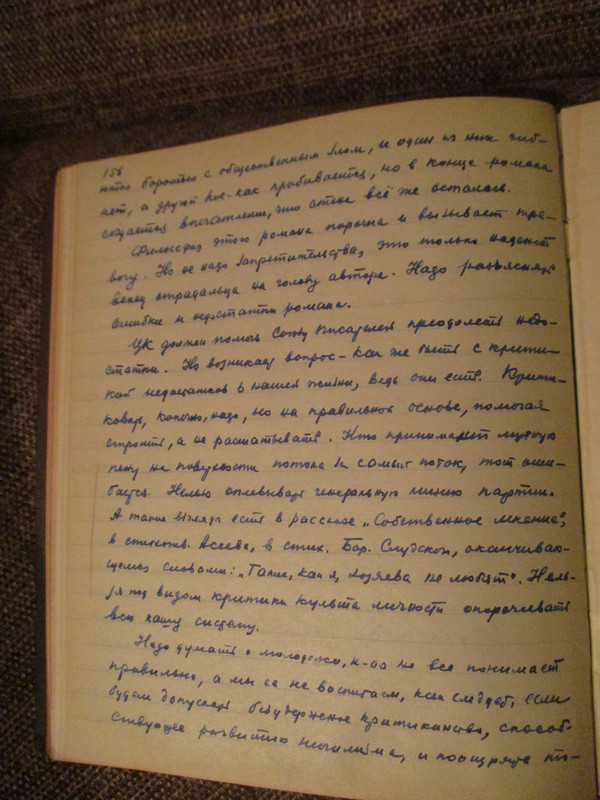 156
ются бороться с общественным злом, и один из них гиб-
нет, а другой кое-как пробивается, но в конце романа
создается впечатление, что стена всё же осталась.
Философия этого романа порочна и вызывает тре-
вогу. Но не надо запретительства, это только наденет
венец страдальца на голову автора. Надо разъяснять
ошибки и недостатки романа.
ЦК должен помочь Союзу писателей преодолеть недо-
статки. Но возникает вопрос – как же быть с крити-
кой недостатков в нашей жизни, ведь они есть. Крити-
ковать, конечно, надо, но на правильной основе, помогая
строить, а не расшатывать. Кто принимает мутную
пену на поверхности потока за самый поток, тот оши-
бается. Нельзя оплевывать генеральную линию партии.
А такие взгляды есть в рассказе „Собственное мнение",
в стихотв. Асеева, в стих. Бор. Слуцкого, оканчиваю-
щемся словами: „Такие, как я, хозяева не любят". Нель-
зя под видом критики культа личности опорочивать
всю нашу систему.
Надо думать о молодежи, к-ая не все понимает
правильно, а мы ее не воспитаем, как следует, если
будем допускать безудержное критиканство, способ-
ствующее развитию нигилизма, и поощрять